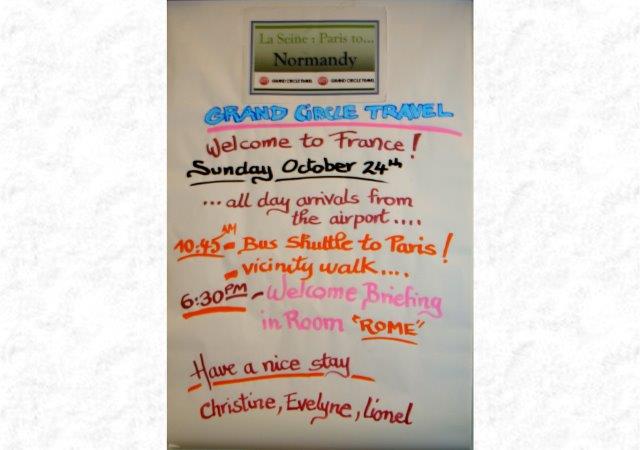 La Seine : Paris to...
Normandy
GRAND CIRCLE TRAVEL GRAND CIRCLE TRAVEL
GRAND CIRCLE TRAVEL
Welcome to France!
Sunday October 24th
...all day arrivals from
the airport....
10:45 AM - Bus Shuttle to Paris!
- vicinity walk....
6:30 PM - Welcome Briefing
in Room "ROME"
Have a nice stay
Christine, Evelyne, Lionel